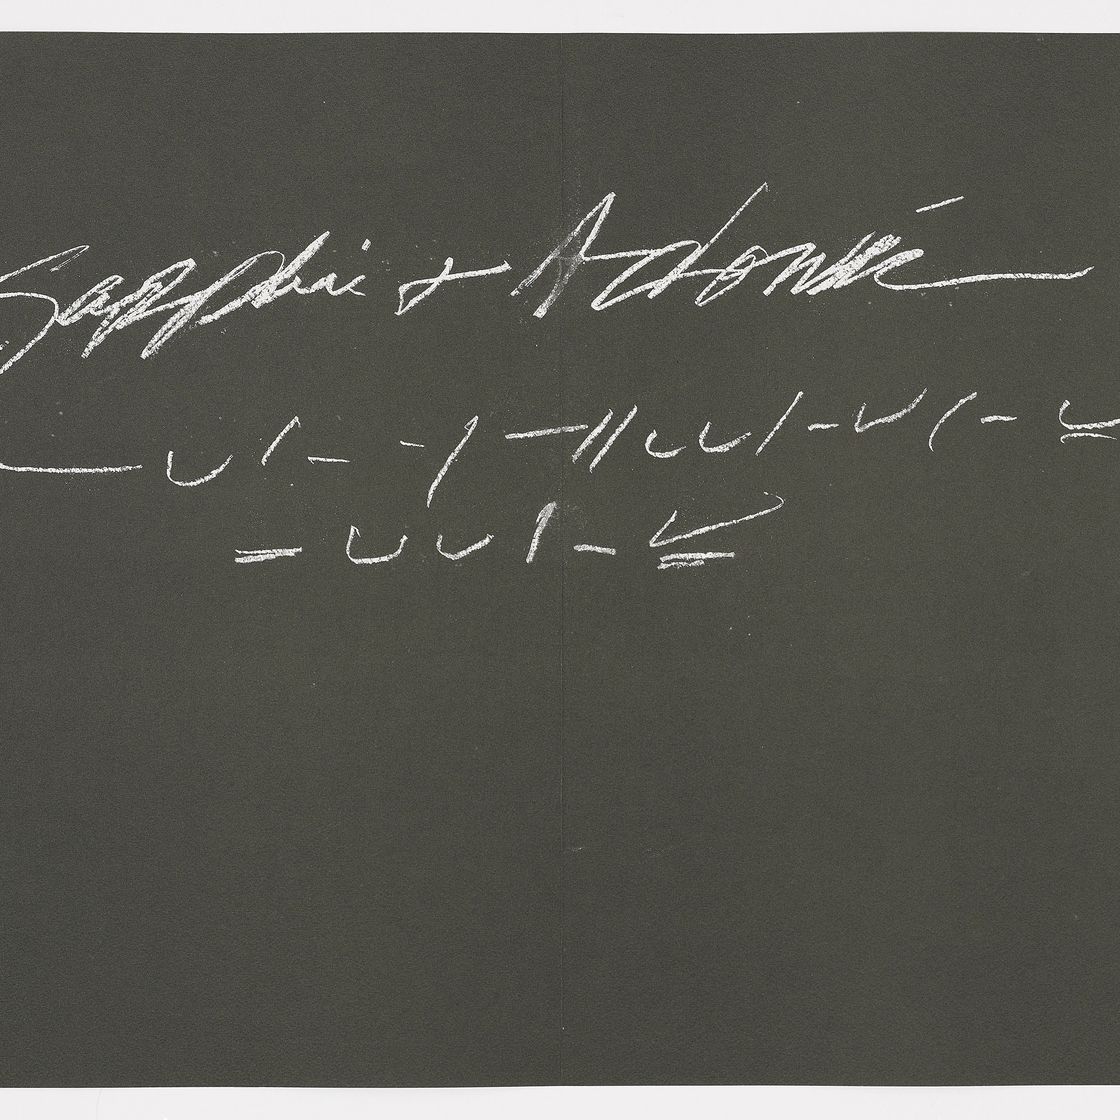 Sapphic + Adonic
— ∪ / – – / — // ∪ ∪ / – ∪ / – ∪
= ∪ ∪ / – ∪